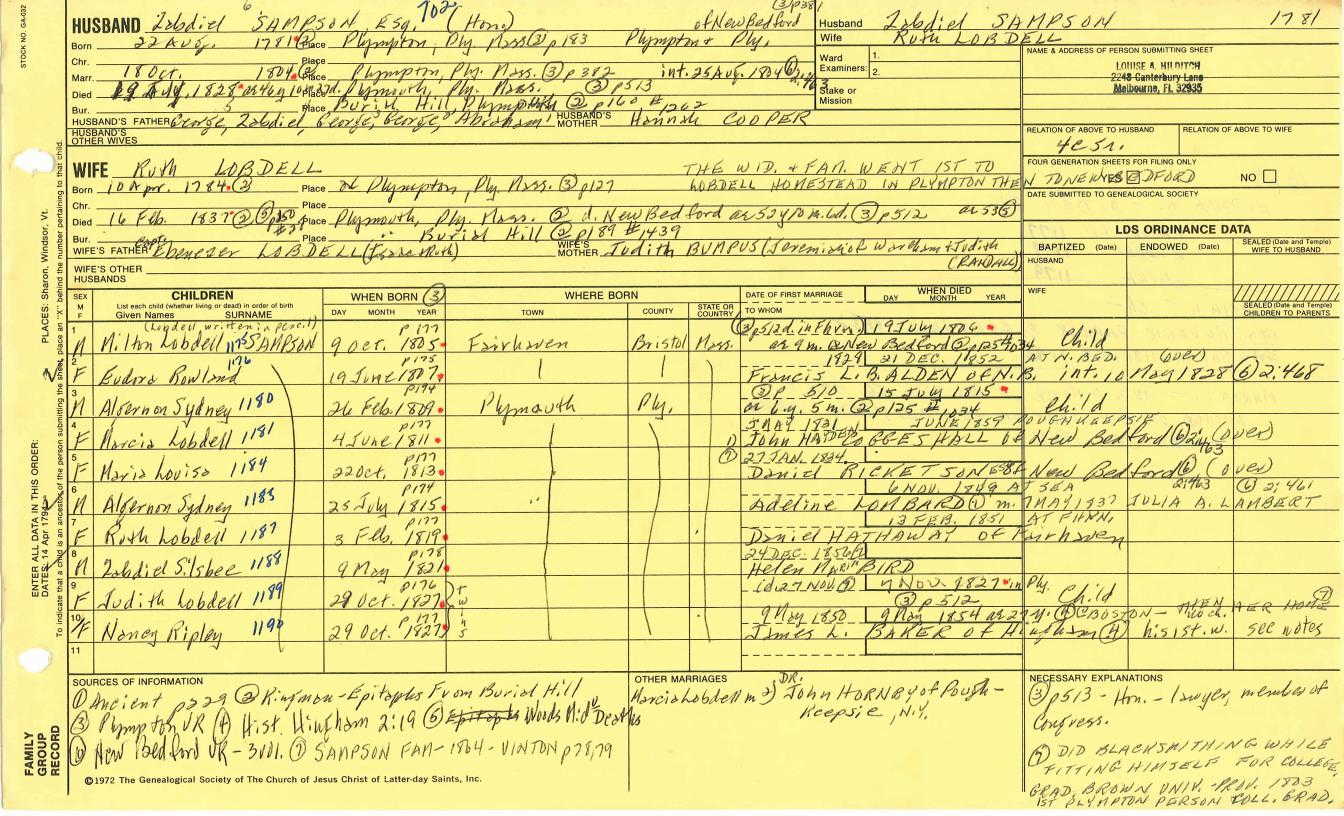 STOCK NO. GA-032
HUSBAND Zabdiel SAMPSON, ESQ. 702 (Hono) of New Bedford
Born 22 Aug. 1781 Place Plympton, Ply. Mass. ③ p183 Plympton & Ply.
Chr. Place
Marr. 18 Oct. 1804 Place Plympton, Ply. Mass. ③ p382 int. 25 Aug. 1804 ⑥
Died 19 July, 1828 Place Plymouth, Ply. Mass. ③ p513
Bur. Place Burial Hill, ② p160 #1262
HUSBAND'S FATHER George, Zabdiel, George, George, Abraham HUSBAND'S MOTHER Hannah COOPER
HUSBAND'S OTHER WIVES
Husband Zabdiel SAMPSON 1781
Wife Ruth LOBDELL
Ward Examiners: 1. 2.
Stake or Mission
NAME & ADDRESS OF PERSON SUBMITTING SHEET
LOUISE A. HILDITCH
2248 Canterbury Lane
Melbourne, FL 32935
RELATION OF ABOVE TO HUSBAND RELATION OF ABOVE TO WIFE
4c5r.
FOUR GENERATION SHEETS FOR FILING ONLY
YES NO
DATE SUBMITTED TO GENEALOGICAL SOCIETY
WIFE Ruth LOBDELL THE WID. & FAM. WENT 1ST TO
LOBDELL HOMESTEAD IN PLYMPTON THEN TO NEW BEDFORD
Born 10 Apr. 1784 ③ Place Plympton, Ply. Mass. ③ p127
Chr. Place
Died 16 Feb. 1837 Place Plymouth, Ply. Mass. ② d. New Bedford ③ p512
Bur. Place " Burial Hill ② p189 #1439
WIFE'S FATHER Ebenezer LOBDELL (Isaac & Ruth) WIFE'S MOTHER Judith BUMPUS (Jeremiah of Wareham & Judith
(RANDALL))
WIFE'S OTHER HUSBANDS
LDS ORDINANCE DATA
BAPTIZED (Date) ENDOWED (Date) SEALED (Date and Temple) WIFE TO HUSBAND
HUSBAND
WIFE
SEALED (Date and Temple) CHILDREN TO PARENTS
SEX M F
CHILDREN
List each child (whether living or dead) in order of birth
Given Names SURNAME
WHEN BORN ③ DAY MONTH YEAR
WHERE BORN TOWN COUNTY STATE OR COUNTRY
DATE OF FIRST MARRIAGE TO WHOM
WHEN DIED DAY MONTH YEAR
(Lobdell written in pencil) p177 19 July 1806
1 M Milton Lobdell 1175 SAMPSON 9 Oct. 1805 Fairhaven Bristol Mass. New Bedford Child
1176 p175 1829 21 DEC. 1852 AT N. BED. (over)
2 F Eudora Rowland 19 June 1807 Francis L. B. ALDEN OF N.B. int. 10 May 1828 ⑥ 2:468
p174 ③ p 510 15 July 1815
3 M Algernon Sydney 1180 26 Feb. 1809 Plymouth Ply. 6 y. 5 m. ② p125 #1034 Child
p177 MAY 1831 JUNE 1859 POUGHKEEPSIE
4 F Marcia Lobdell 1181 4 June 1811 John HAYDEN COGGESHALL of New Bedford ⑥ 2:463 (over)
p177 27 JAN. 1834
5 F Maria Louisa 1184 22 Oct. 1813 Daniel RICKETSON of New Bedford ⑥ (over)
p174 6 NOV. 1849 AT SEA 2:463 ⑥ 2:461
6 M Algernon Sydney 1185 25 July 1815 " Adeline LOMBARD ① m. 7 MAY 1837 JULIA A. LAMBERT
p177 13 FEB. 1851 AT FHVN.
7 F Ruth Lobdell 1187 3 Feb. 1819 Daniel HATHAWAY OF Fairhaven
p178 24 DEC. 1856
8 M Zabdiel Silsbee 1188 9 May 1821 Helen Maria BIRD
p176 7 Nov. 1827 in Ply.
9 F Judith Lobdell 1189 29 Oct. 1827 Twins ③ p512 Child
p177 9 May 1850 9 May 1854 BOSTON — THEN HER HOME ⑦
10 F Nancy Ripley 1190 29 Oct. 1827 James L. BAKER OF Hingham ④ his 1st. w. see notes
11
SOURCES OF INFORMATION
① Ancient p229 ② Kingman - Epitaphs From Burial Hill
③ Plympton VR ④ Hist. Hingham 2:19 ⑤ Epitaphs Woods Mid° Deaths
⑥ New Bedford VR - 3vol. ⑦ SAMPSON FAM - 1864 - VINTON p78,79
OTHER MARRIAGES
Marcia Lobdell m 2) DR. John HORNBY of Pough-
keepsie, N.Y.
NECESSARY EXPLANATIONS
③ p513 - Hon. - lawyer, member of
Congress.
⑦ DID BLACKSMITHING WHILE
FITTING HIMSELF FOR COLLEGE,
GRAD. BROWN UNIV. - PROV. 1803
1ST PLYMPTON PERSON COLL. GRAD.
©1972 The Genealogical Society of The Church of Jesus Christ of Latter-day Saints, Inc.
FAMILY GROUP RECORD
ENTER ALL DATA IN THIS ORDER:
DATES: 14 Apr 1794
PLACES: Sharon, Windsor, Vt.
To indicate that a child is an ancestor of the person submitting the sheet, place an "X" behind the number pertaining to that child.